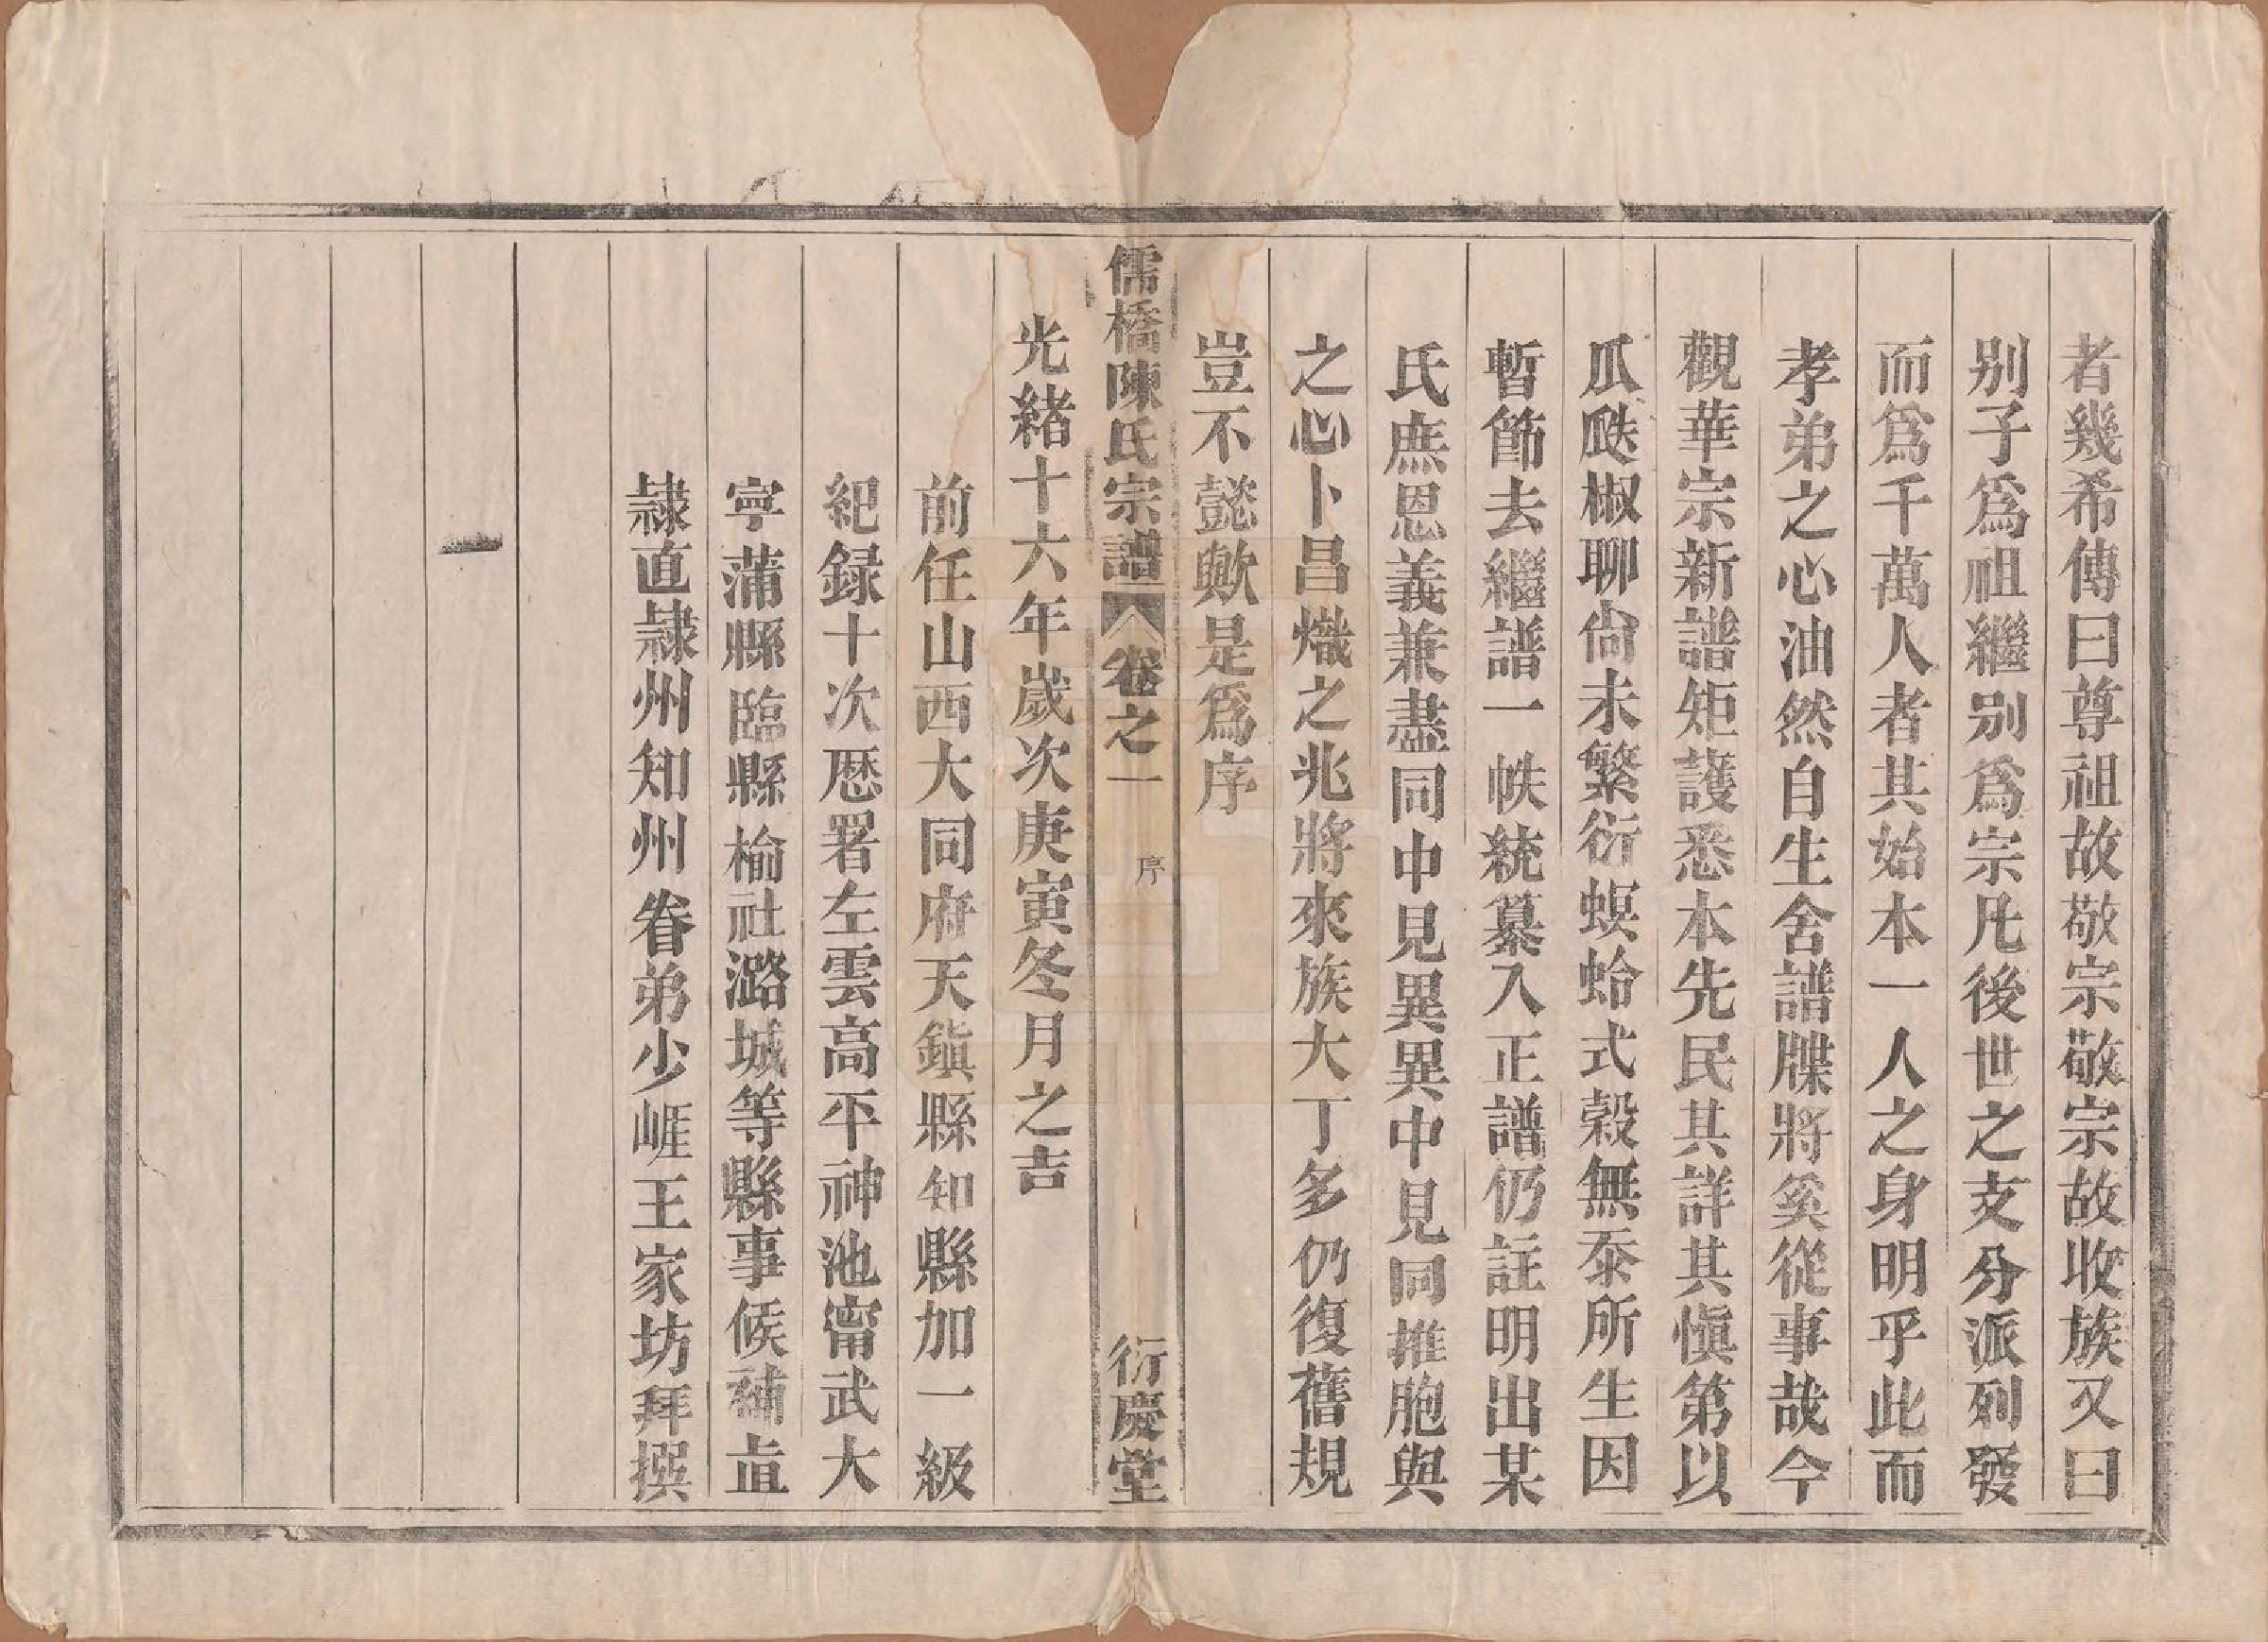 者幾希傳曰尊祖故敬宗敬宗故收族又曰
别子爲祖繼别爲宗凡後世之支分派列發
而爲千萬人者其始本一人之身明乎此而
孝弟之心油然自生舍譜牒將奚從事哉今
觀華宗新譜矩䕶悉本先民其詳其愼第以
瓜瓞椒聊尙未繁衍螟蛤式榖無忝所生因
暫節去繼譜一帙統纂入正譜仍註明出某
氏庶恩義兼盡同中見異異中見同推胞與
之心卜昌熾之兆將來族大丁多仍復舊規
豈不懿歟是爲序
儒橋陳氏宗譜 卷之一 序 一 衍慶堂
光緒十六年歲次庚寅冬月之吉
前任山西大同府天鎭縣知縣加一級
紀録十次歷署左雲高平神池甯武大
寜蒲縣臨縣榆社潞城等縣事候補直
隸直隸州知州眷弟少崕王家坊拜撰